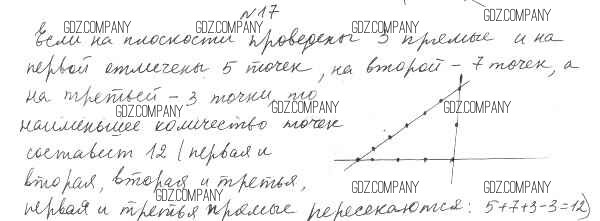 №17
GDZ.COMPANY
GDZ.COMPANY GDZ.COMPANY GDZ.COMPANY
Если на плоскости проведены 3 прямые и на
первой отмечены 5 точек, на второй – 7 точек, а
на третьей – 3 точки, то
GDZ.COMPANY GDZ.COMPANY GDZ.COMPANY
наименьшее количество точек
составит 12 (первая и
вторая, вторая и третья,
GDZ.COMPANY GDZ.COMPANY GDZ.COMPANY
первая и третья прямые пересекаются: 5+7+3-3=12)